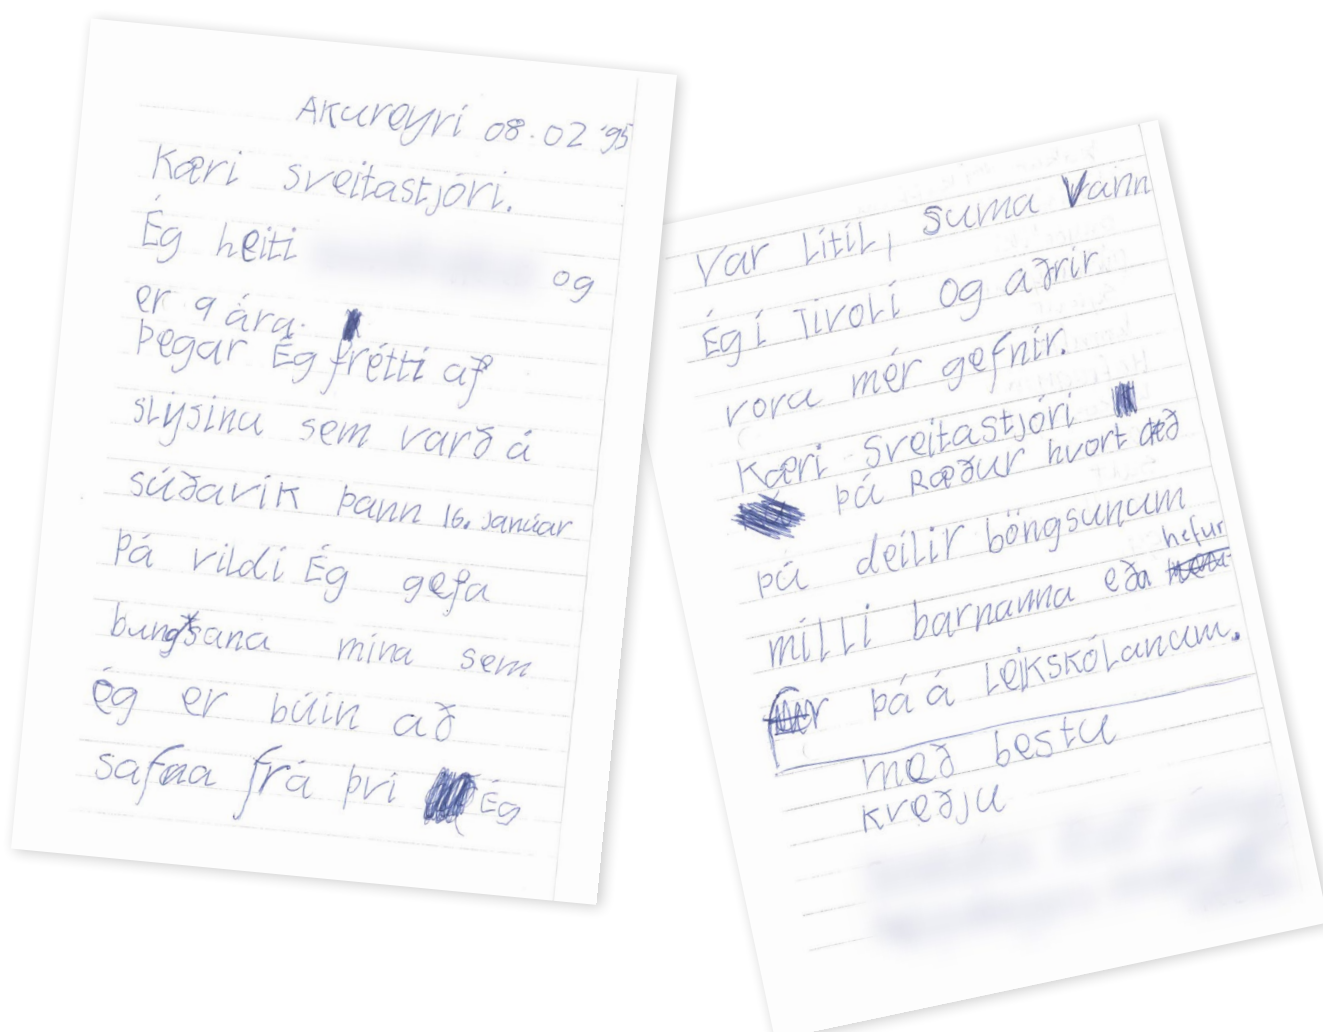 Akureyri 08.02 '95
Kæri sveitastjóri.
Ég heiti og
er 9 ára.
Þegar Ég frétti af
slysinu sem varð á
súðavík þann 16. Janúar
Þá vildi Ég gefa
bungsana mína sem
ég er búin að
safna frá því Ég
Var lítil, suma Vann
Ég í Tivolí og aðrir
voru mér gefnir.
Kæri Sveitastjóri
þú Ræður hvort
þú deilir böngsunum
milli barnanna eða hefur
þá á leikskólanum.
með bestu
kveðju